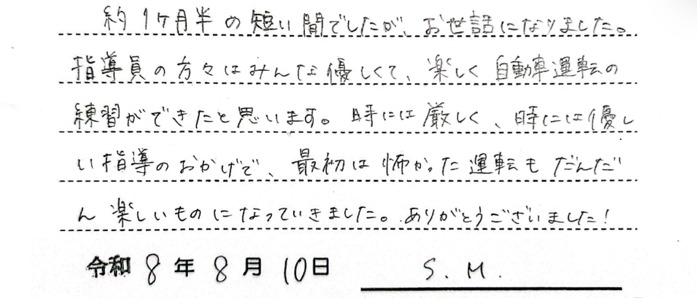 約1ケ月半の短い間でしたが、お世話になりました。
指導員の方々はみんな優しくて、楽しく自動車運転の
練習ができたと思います。時には厳しく、時には優し
い指導のおかげで、最初は怖かった運転もだんだ
ん楽しいものになっていきました。ありがとうございました!
令和8年8月10日 S.M.